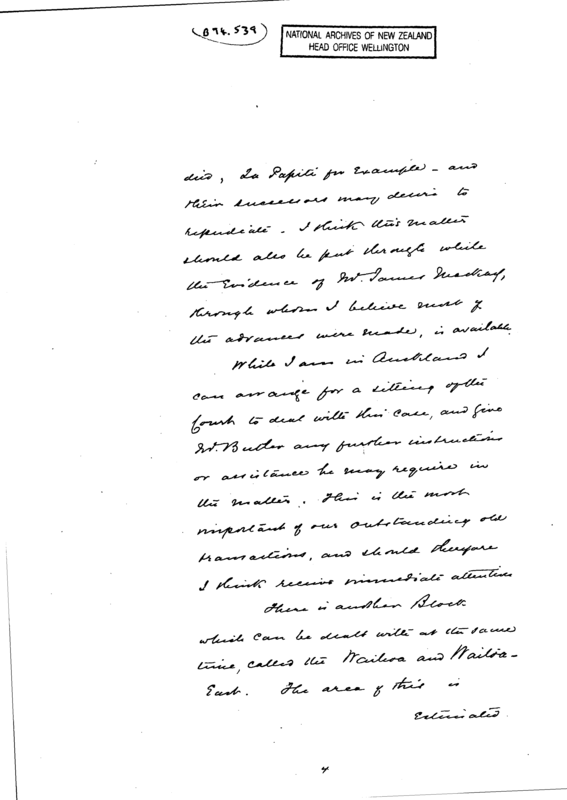 (B94.539)
NATIONAL ARCHIVES OF NEW ZEALAND
HEAD OFFICE WELLINGTON
died, Te Papiti for Example - and
their successors may desire to
repudiate - I think this matter
should also be put through while
the Evidence of Mr. James Mackay,
through whom I believe most of
the advances were made, is available.
While I am in Auckland I
can arrange for a sitting of the
Court to deal with this case, and give
Mr. Butler any further instructions
or assistance he may require in
the matter. This is the most
important of our outstanding old
transactions, and should therefore
I think receive immediate attention
There is another Block
which can be dealt with at the same
time, called the Waihoa and Waihoa-
East. The area of this is
Estimated
4